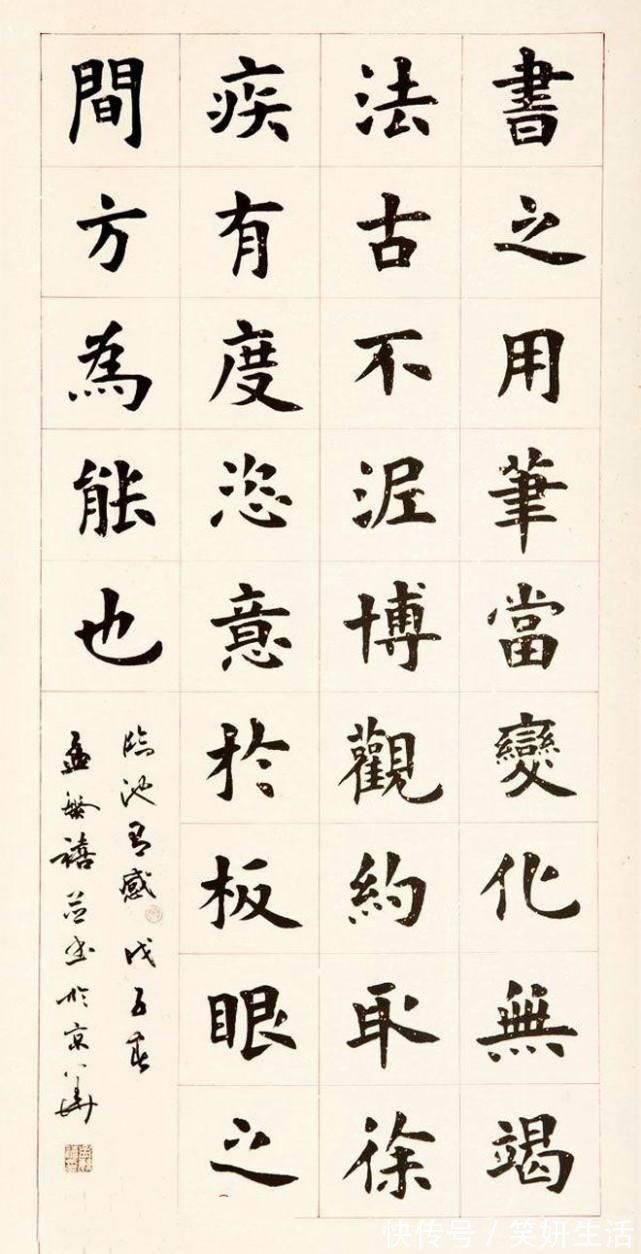 書之用筆當變化無竭
法古不泥博觀約取徐
疾有度恣意於板眼之
間方為能也
臨池有感 戊子春
孟繁禧并書於京華
快传号/笑妍生活